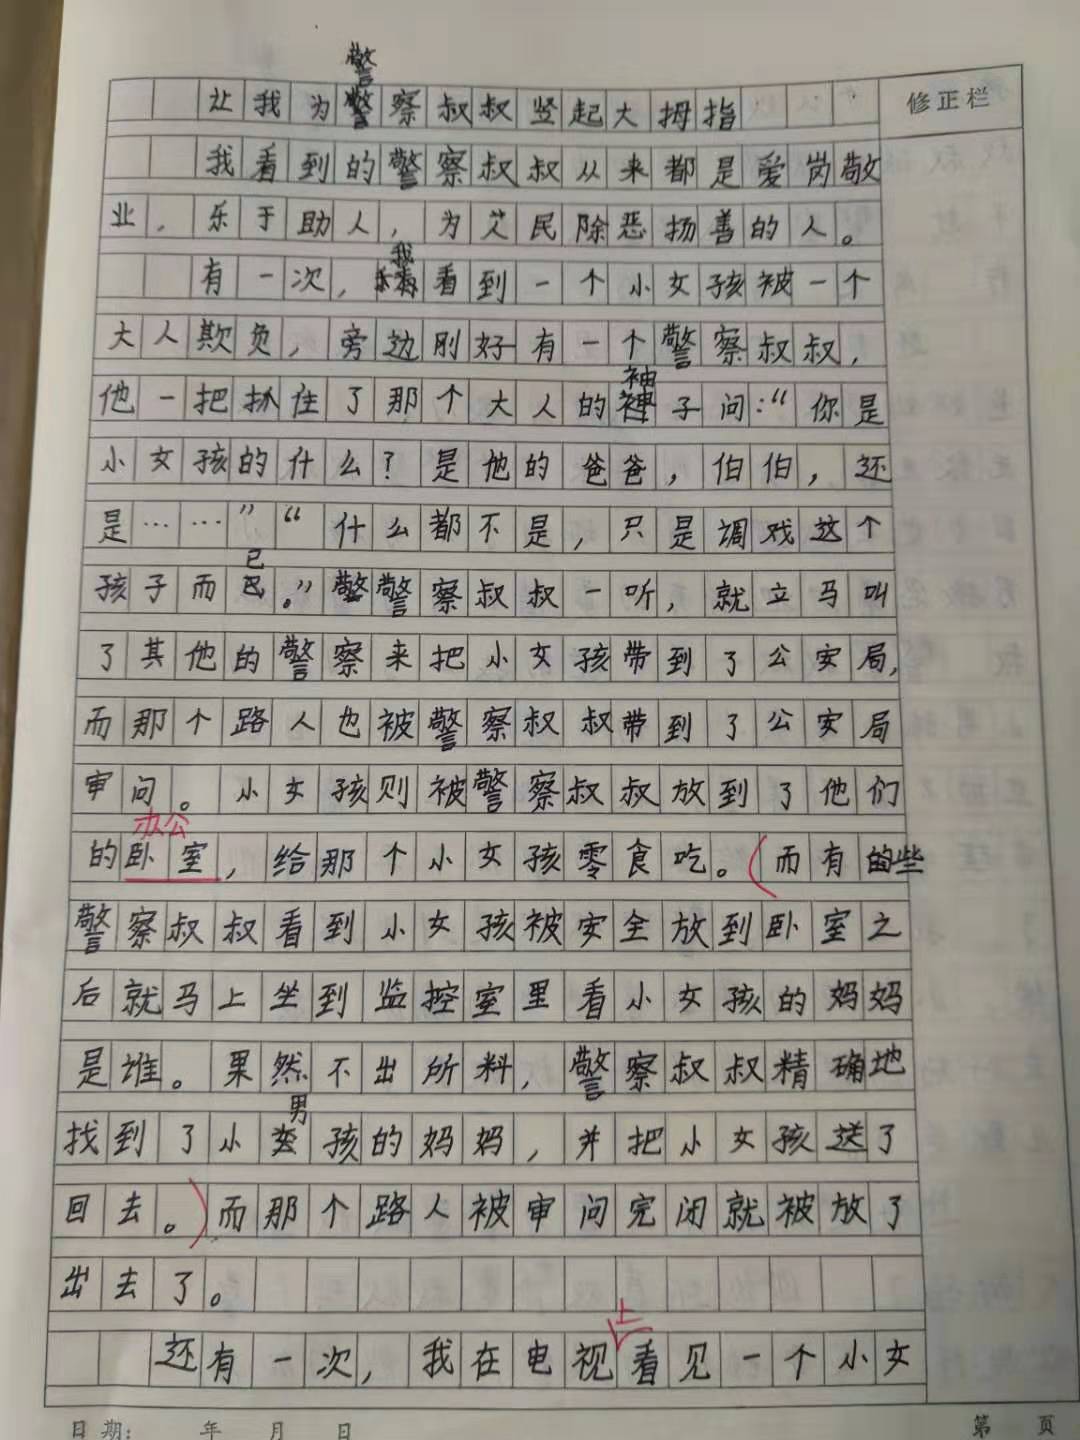 警
让我为警察叔叔竖起大拇指
修正栏
我看到的警察叔叔从来都是爱岗敬
业，乐于助人，为艾民除恶扬善的人。
我
有一次，看到一个小女孩被一个
大人欺负，旁边刚好有一个警察叔叔，
他一把抓住了那个大人的子问：“你是
小女孩的什么？是他的爸爸，伯伯，还
是……”“什么都不是，只是调戏这个
已
孩子而。”警警察叔叔一听，就立马叫
了其他的警察来把小女孩带到了公安局，
而那个路人也被警察叔叔带到了公安局
审问。小女孩则被警察叔叔放到了他们
办公
的卧室，给那个小女孩零食吃。（而有的些
警察叔叔看到小女孩被安全放到卧室之
后就马上坐到监控室里看小女孩的妈妈
是谁。果然不出所料，警察叔叔精确地
男
找到了小孩的妈妈，并把小女孩送了
回去。）而那个路人被审问完闭就被放了
出去了。
上
还有一次，我在电视看见一个小女
日期：　年　月　日
第　页